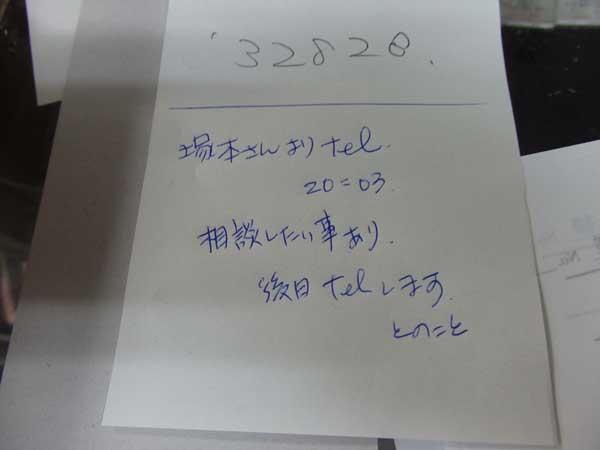 '32820.
塚本さんより tel.
20=03.
相談したい事あり.
後日 telします.
とのこと
No.